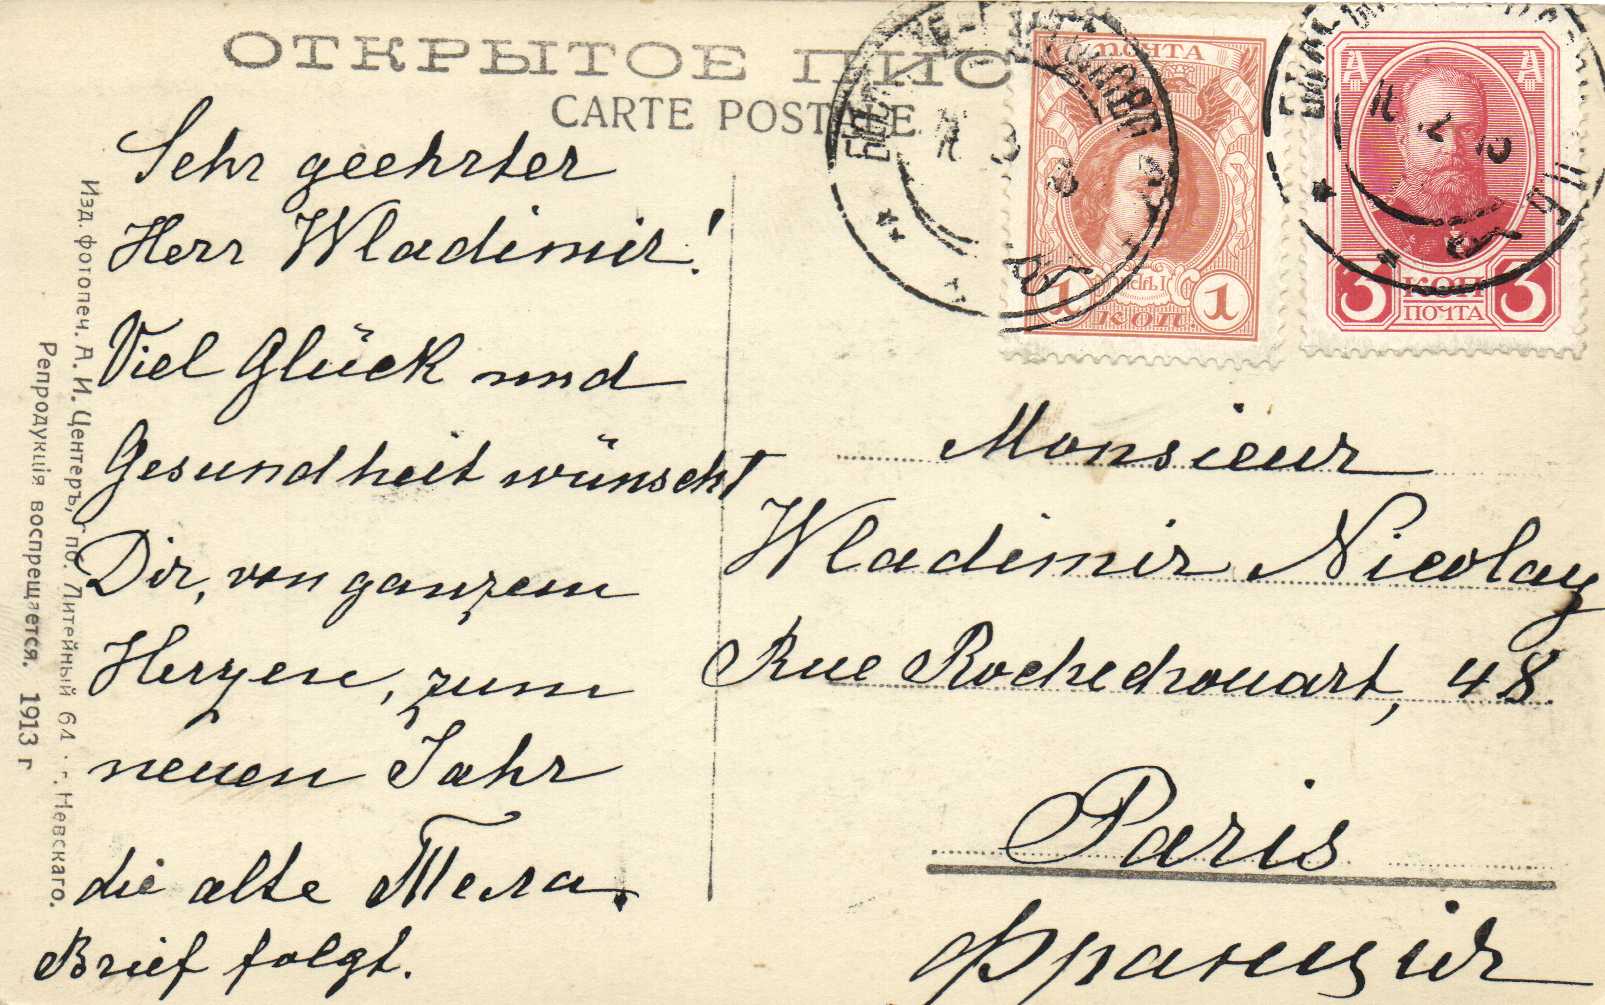 ОТКРЫТОЕ ПИС
CARTE POSTALE
Sehr geehrter
Herr Wladimir!
Viel Glück und
Gesundheit wünscht
Dir, von ganzem
Herzen, zum
neuen Jahr
die alte Тела.
Brief folgt.
Monsieur
Wladimir Nicolay
Rue Rochechouart, 48
Paris
Франція
ПОЧТА
1 1
КОП.
3 КОП 3
ПОЧТА
Изд. фотопеч. А. И. Центеръ, Литейный 61 Невскаго.
Репродукція воспрещается. 1913 г